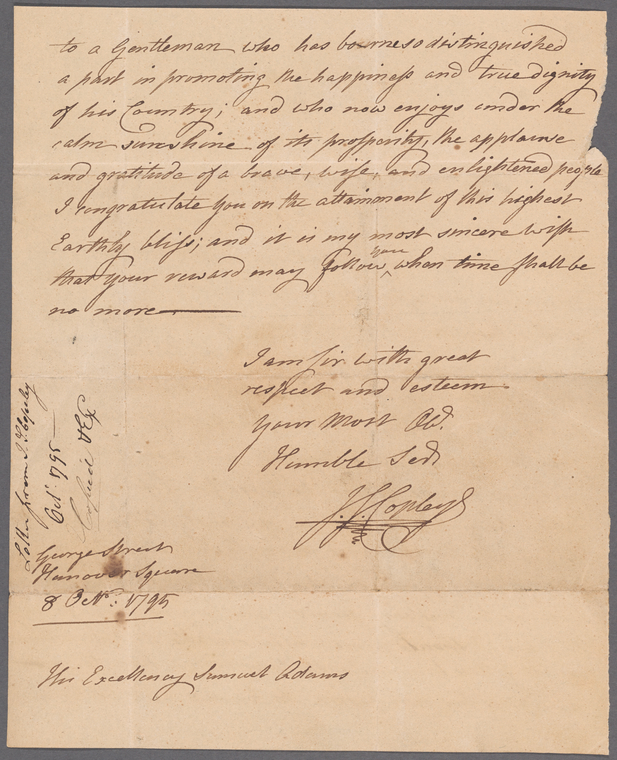 to a Gentleman who has borne so distinguished
a part in promoting the happiness and true dignity
of his Country; and who now enjoys under the
calm sunshine of its prosperity, the applause
and gratitude of a brave, wise, and enlightened people
I congratulate you on the attainment of this highest
Earthly bliss; and it is my most sincere wish
that your reward may follow you, when time shall be
no more
I am Sir with great
respect and esteem
your Most Ob.
Humble Ser
J. S. Copley
George Street
Hanover Square
8 Octr. 1795
His Excellency Samuel Adams
Letter from J. S. Copley
Oct 1795
Copied & Ex